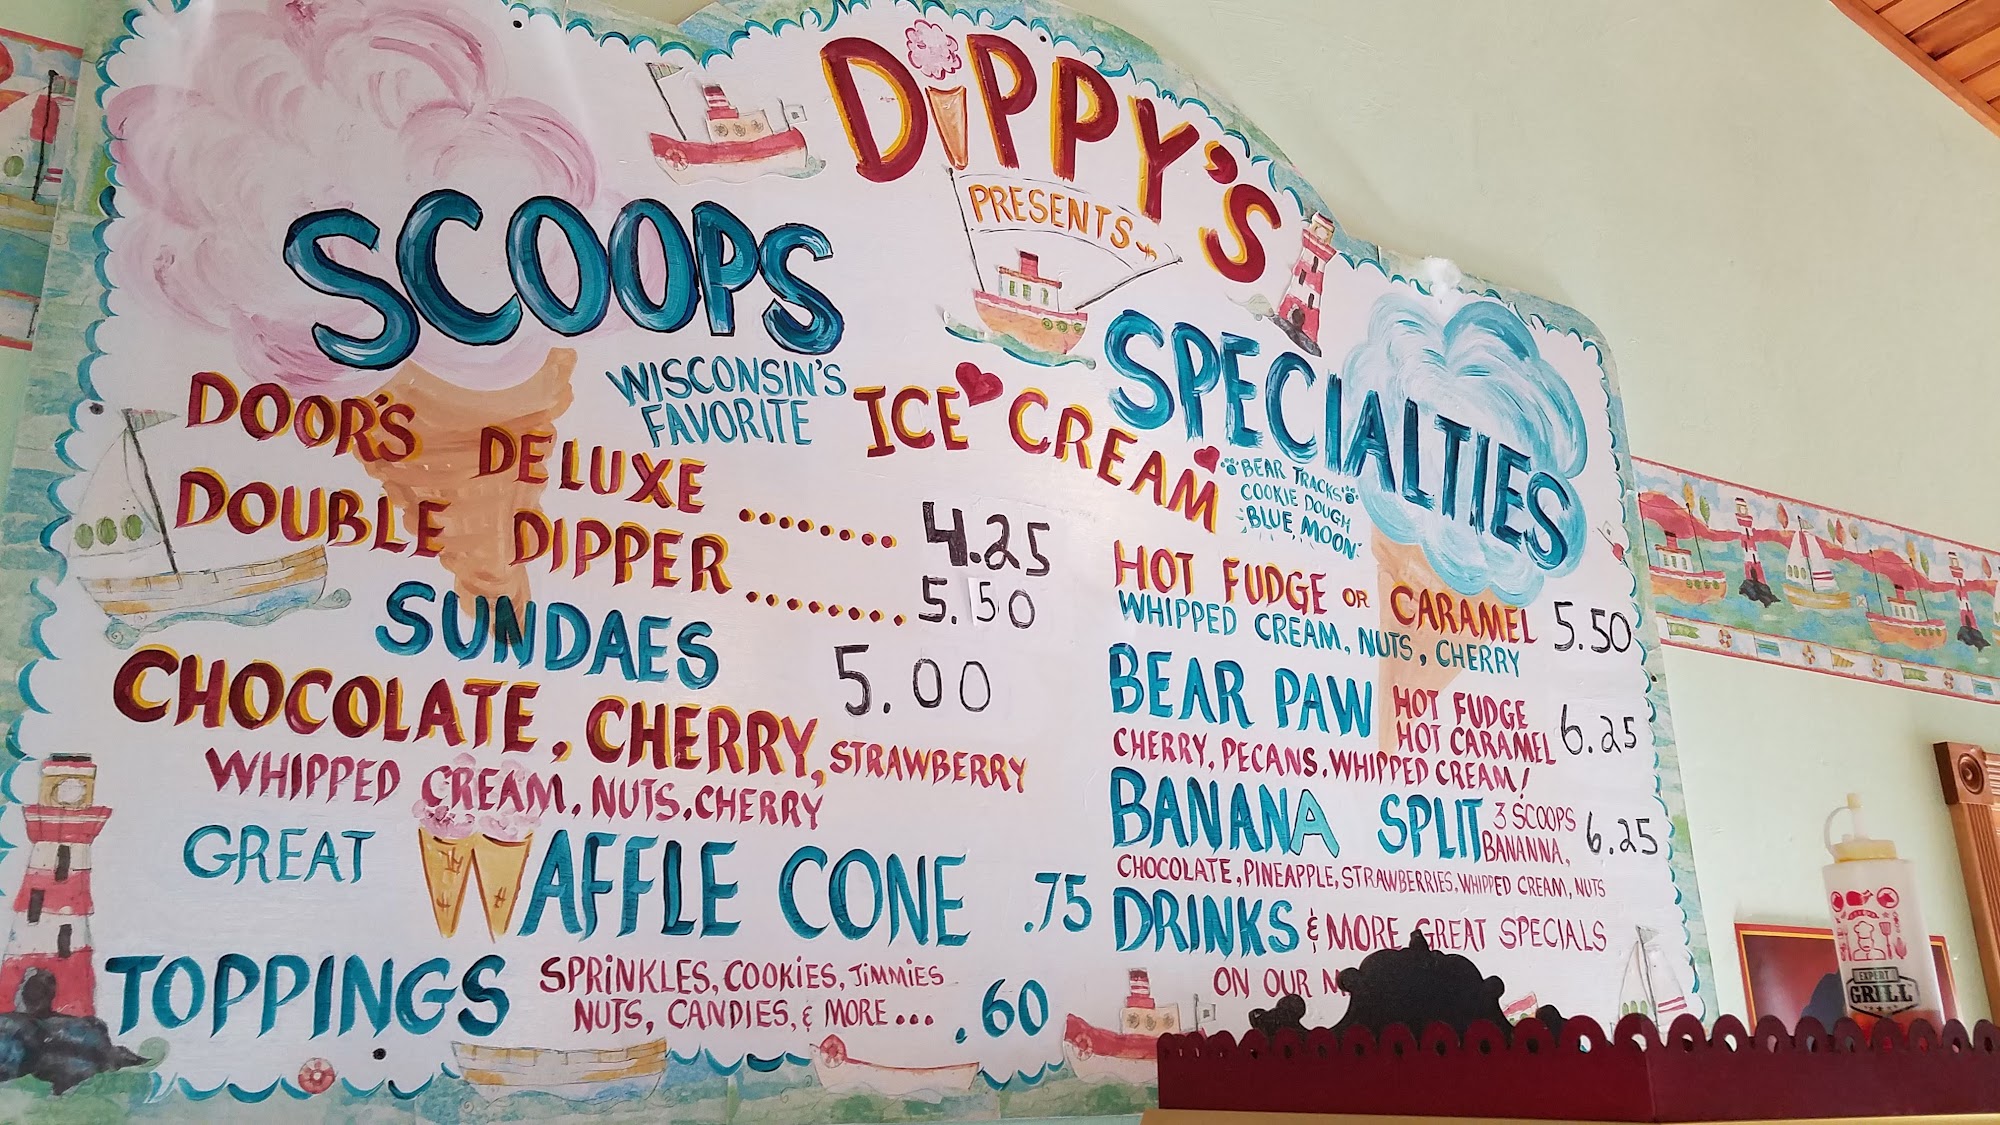 DiPPY'S
PRESENTS
SCOOPS
WISCONSIN'S
FAVORITE
ICE CREAM
DOOR'S DELUXE ........ 4.25
DOUBLE DIPPER ......... 5.50
SUNDAES 5.00
CHOCOLATE, CHERRY, STRAWBERRY
WHIPPED CREAM, NUTS, CHERRY
GREAT WAFFLE CONE .75
TOPPINGS SPRiNKLES, COOKiES, JiMMiES
NUTS, CANDiES, & MORE... .60
SPECIALTIES
BEAR TRACKS
COOKIE DOUGH
BLUE MOON
HOT FUDGE OR CARAMEL 5.50
WHIPPED CREAM, NUTS, CHERRY
BEAR PAW HOT FUDGE
HOT CARAMEL 6.25
CHERRY, PECANS, WHIPPED CREAM!
BANANA SPLIT 3 SCOOPS
BANANNA, 6.25
CHOCOLATE, PINEAPPLE, STRAWBERRIES, WHIPPED CREAM, NUTS
DRINKS & MORE GREAT SPECIALS
ON OUR
EXPERT
GRILL